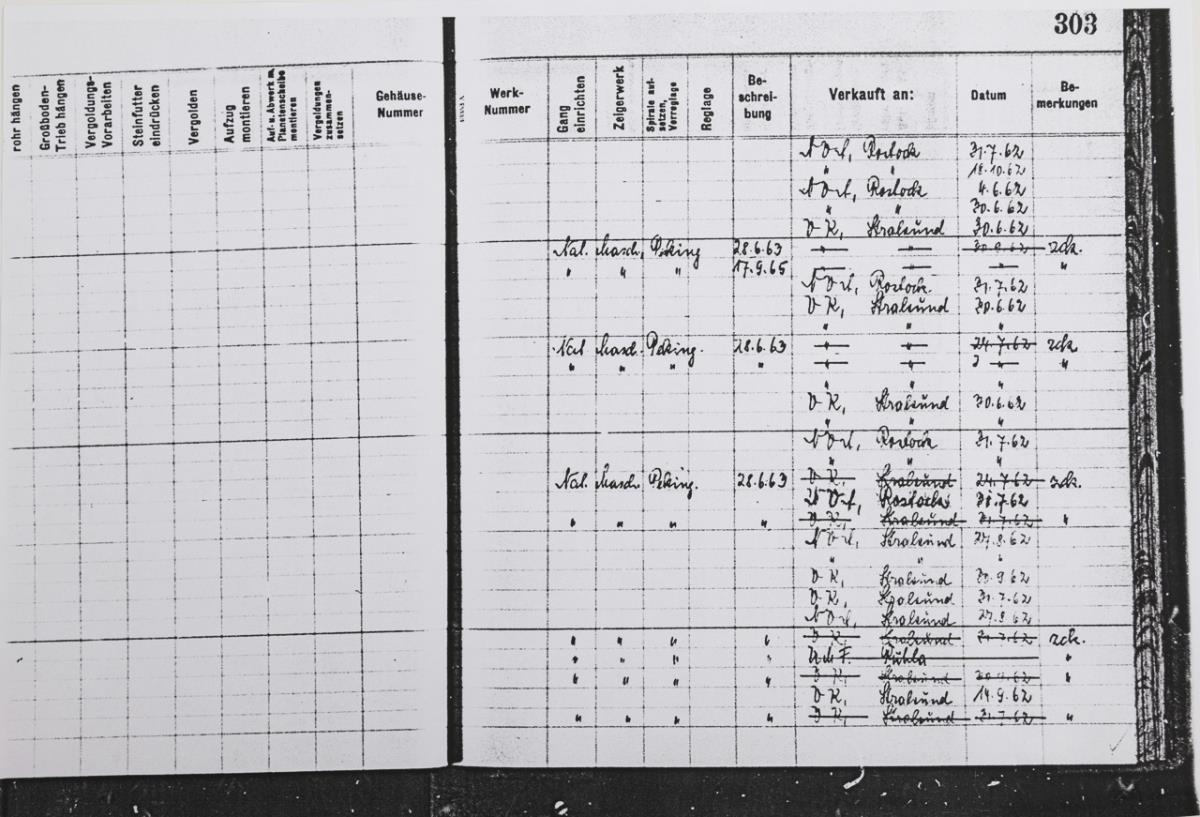 303
rohr hängen
Großboden-
Trieb hängen
Vergoldungs-
Vorarbeiten
Steinfutter
eindrücken
Vergolden
Aufzug
montieren
Auf- u. Abwerk m.
Planetenscheibe
montieren
Vergoldungen
zusammen-
setzen
Gehäuse-
Nummer
Werk-
Nummer
Gang
einrichten
Zeigerwerk
Spirale auf-
setzen,
Vorreglage
Reglage
Be-
schrei-
bung
Verkauft an:
Datum
Be-
merkungen
Rostock 31.7.62
" " 18.10.62
Rostock 4.6.62
" " 30.6.62
D-K, Stralsund 30.6.62
Nat. Masch. Peking 28.6.63 " " rck.
" " " 17.9.65 " " " "
Rostock. 31.7.62
D-K, Stralsund 30.6.62
" " "
Nat. Masch. Peking. 18.6.63 " " 24.7.62 rck
" " " " " " " "
" " "
D-K, Stralsund 30.6.62
" " "
Rostock 31.7.62
" " "
Nat. Masch. Peking. 28.6.63 D-K, Stralsund 24.7.62 rck.
Rostock 31.7.62
" " " " D-K, Stralsund 31.7.62 "
Stralsund 27.8.62
" " "
D-K, Stralsund 30.9.62
D-K, Stralsund 31.7.62
Stralsund 27.8.62
" " " " D-K, Stralsund 31.7.62 rck.
" " " " Ruhla "
" " " " D-K, Stralsund "
D-K, Stralsund 14.9.62
" " " " D-K, Stralsund 31.7.62 "